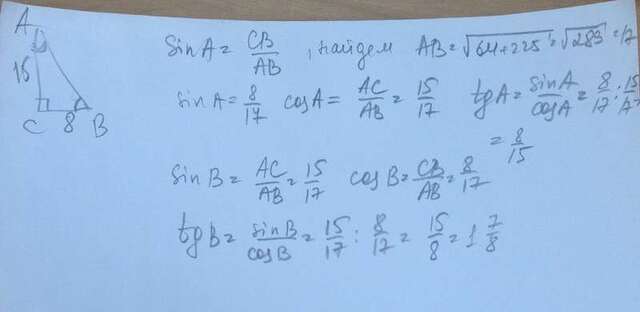 A
15
C 8 B
sin A = CB/AB , найдем AB = √64+225 = √289 = 17
sin A = 8/17 cos A = AC/AB = 15/17 tg A = sinA/cosA = 8/17 : 15/17
= 8/15
sin B = AC/AB = 15/17 cos B = CB/AB = 8/17
tg B = sinB/cosB = 15/17 : 8/17 = 15/8 = 1 7/8